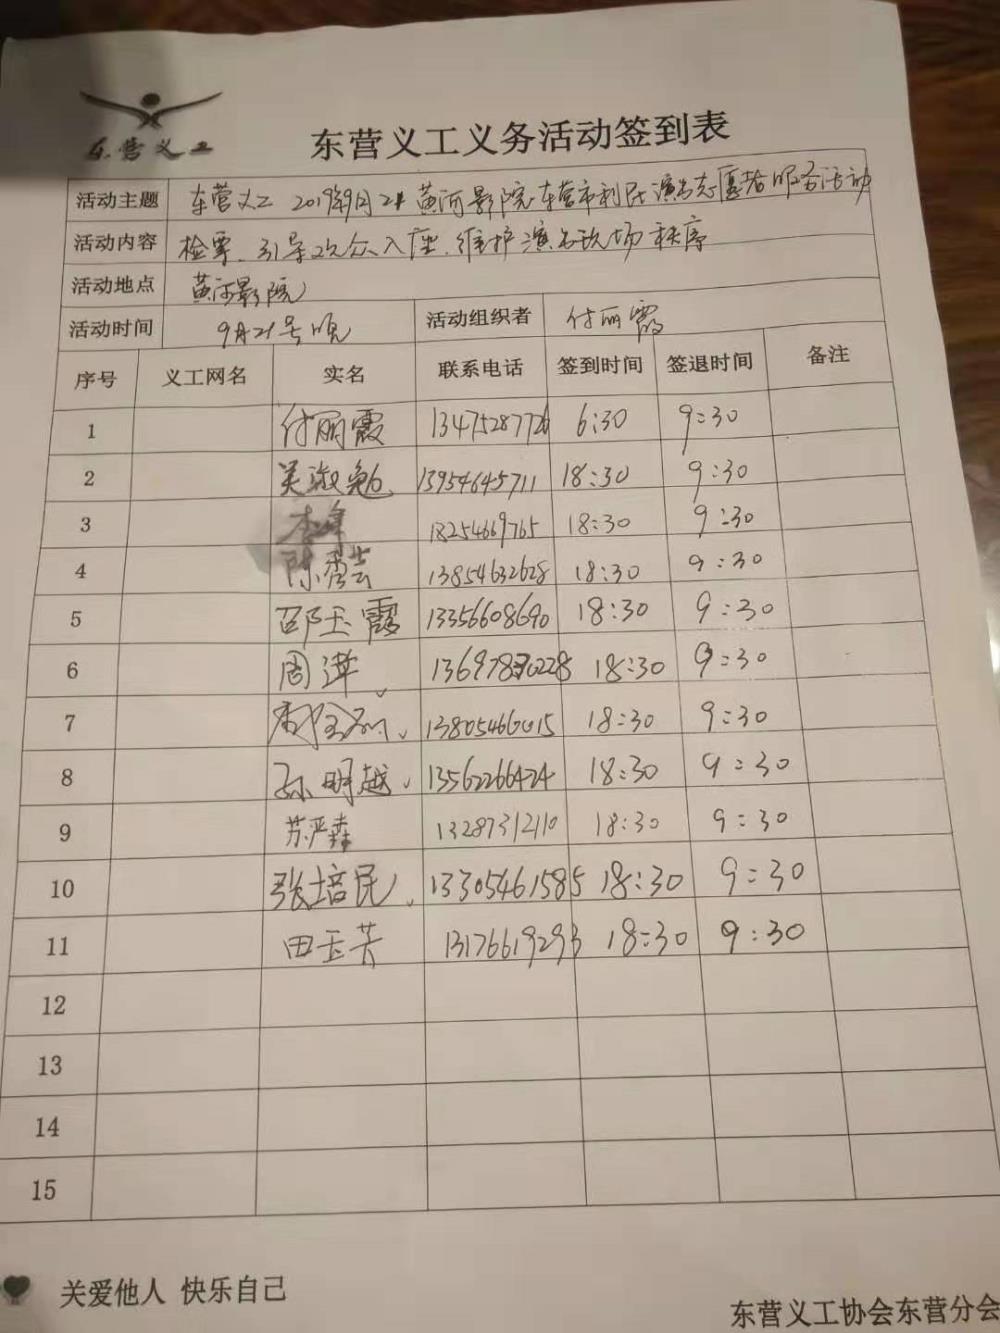 东营义工
东营义工义务活动签到表
活动主题 东营义工 2019年9月21 黄河影院东营市利民演出志愿者服务活动
活动内容 检票、引导观众入座、维护演出现场秩序
活动地点 黄河影院
活动时间 9月21号晚 活动组织者 付丽霞
序号 义工网名 实名 联系电话 签到时间 签退时间 备注
1 付丽霞 13475287726 6:30 9:30
2 吴淑勉 13954645711 18:30 9:30
3 李峰 18254669765 18:30 9:30
4 陈秀芸 13854632628 18:30 9:30
5 邵玉霞 13356608690 18:30 9:30
6 周 18:30 9:30
7 13805460015 18:30 9:30
8 孙明越 13562266424 18:30 9:30
9 苏严森 13287312110 18:30 9:30
10 张培民 13305461585 18:30 9:30
11 田玉芳 13176619293 18:30 9:30
12
13
14
15
关爱他人 快乐自己
东营义工协会东营分会